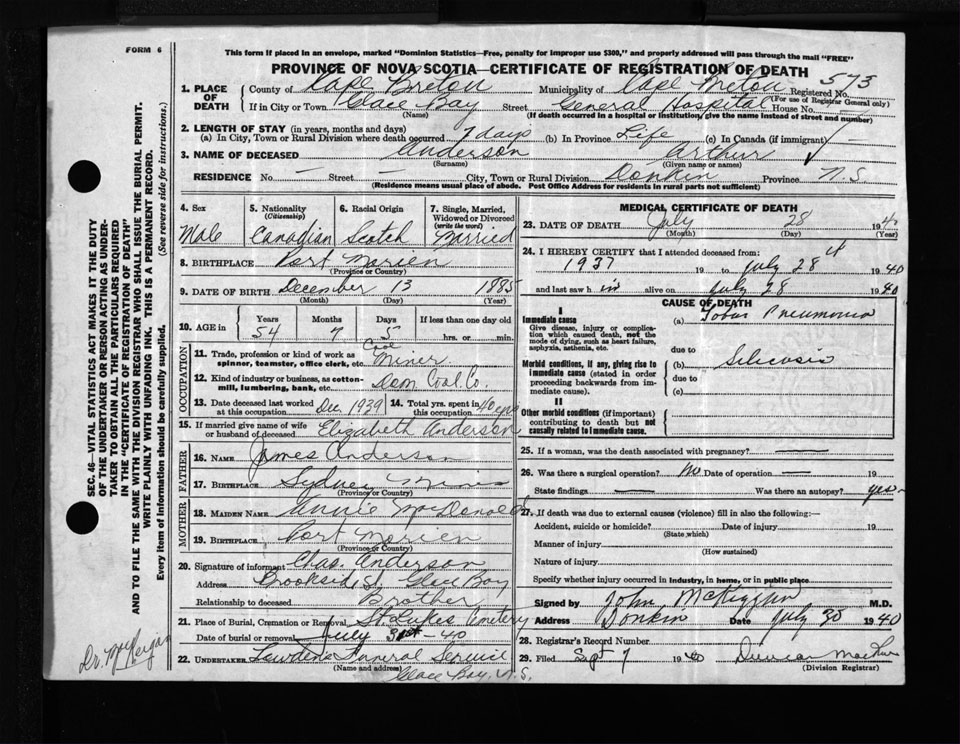 FORM 6
This form if placed in an envelope, marked "Dominion Statistics—Free, penalty for improper use $300," and properly addressed will pass through the mail "FREE"
PROVINCE OF NOVA SCOTIA—CERTIFICATE OF REGISTRATION OF DEATH
573
1. PLACE OF DEATH
County of Cape Breton Municipality of Cape Breton Registered No.
(For use of Registrar General only)
If in City or Town Glace Bay Street General Hospital House No.
(Name) (If death occurred in a hospital or institution, give the name instead of street and number)
2. LENGTH OF STAY (in years, months and days)
(a) In City, Town or Rural Division where death occurred 7 days (b) In Province Life (c) In Canada (if immigrant) —
3. NAME OF DECEASED Anderson Arthur
(Surname) (Given name or names)
RESIDENCE No. — Street — City, Town or Rural Division Donkin Province N.S
(Residence means usual place of abode. Post Office Address for residents in rural parts not sufficient)
4. Sex Male
5. Nationality (Citizenship) Canadian
6. Racial Origin Scotch
7. Single, Married, Widowed or Divorced (write the word) Married
8. BIRTHPLACE Port Morien
(Province or Country)
9. DATE OF BIRTH December 13 1885
(Month) (Day) (Year)
10. AGE in Years Months Days If less than one day old
54 7 5 hrs. or min.
OCCUPATION
11. Trade, profession or kind of work as spinner, teamster, office clerk, etc. Miner
12. Kind of industry or business, as cotton-mill, lumbering, bank, etc. Dom Coal Co.
13. Date deceased last worked at this occupation Dec. 1939
14. Total yrs. spent in this occupation 40 yrs
15. If married give name of wife or husband of deceased Elizabeth Anderson
FATHER
16. NAME James Anderson
17. BIRTHPLACE Sydney Mines
(Province or Country)
MOTHER
18. MAIDEN NAME Annie MacDonald
19. BIRTHPLACE Port Morien
(Province or Country)
20. Signature of informant Chas. Anderson
Address Brookside St. Glace Bay
Relationship to deceased Brother
21. Place of Burial, Cremation or Removal St. Lukes Cemetery
Date of burial or removal July 31st - 40
22. UNDERTAKER Funeral Service
(Name and address)
Glace Bay, N.S.
MEDICAL CERTIFICATE OF DEATH
23. DATE OF DEATH July 28 1940
(Month) (Day) (Year)
24. I HEREBY CERTIFY that I attended deceased from:
1937 19 to July 28 1940
and last saw him alive on July 28 1940
CAUSE OF DEATH
I
Immediate cause (a) Lobar Pneumonia
Give disease, injury or complication which caused death, not the mode of dying, such as heart failure, asphyxia, asthenia, etc.
due to
Morbid conditions, if any, giving rise to immediate cause (stated in order proceeding backwards from immediate cause).
(b) Silicosis
due to
(c)
II
Other morbid conditions (if important) contributing to death but not causally related to immediate cause.
25. If a woman, was the death associated with pregnancy? —
26. Was there a surgical operation? No Date of operation — 19
State findings — Was there an autopsy? yes
27. If death was due to external causes (violence) fill in also the following:—
Accident, suicide or homicide? Date of injury 19
(State which)
Manner of injury
(How sustained)
Nature of injury
Specify whether injury occurred in industry, in home, or in public place
Signed by John McKiggan M.D.
Address Donkin Date July 30 1940
28. Registrar's Record Number
29. Filed Sept 7 1940 Duncan
(Division Registrar)
SEC. 46—VITAL STATISTICS ACT MAKES IT THE DUTY
OF THE UNDERTAKER OR PERSON ACTING AS UNDER-
TAKER TO OBTAIN ALL THE PARTICULARS REQUIRED
IN THE "CERTIFICATE OF REGISTRATION OF DEATH"
AND TO FILE THE SAME WITH THE DIVISION REGISTRAR WHO SHALL ISSUE THE BURIAL PERMIT.
WRITE PLAINLY WITH UNFADING INK. THIS IS A PERMANENT RECORD.
Every item of information should be carefully supplied. (See reverse side for instructions.)
Dr.